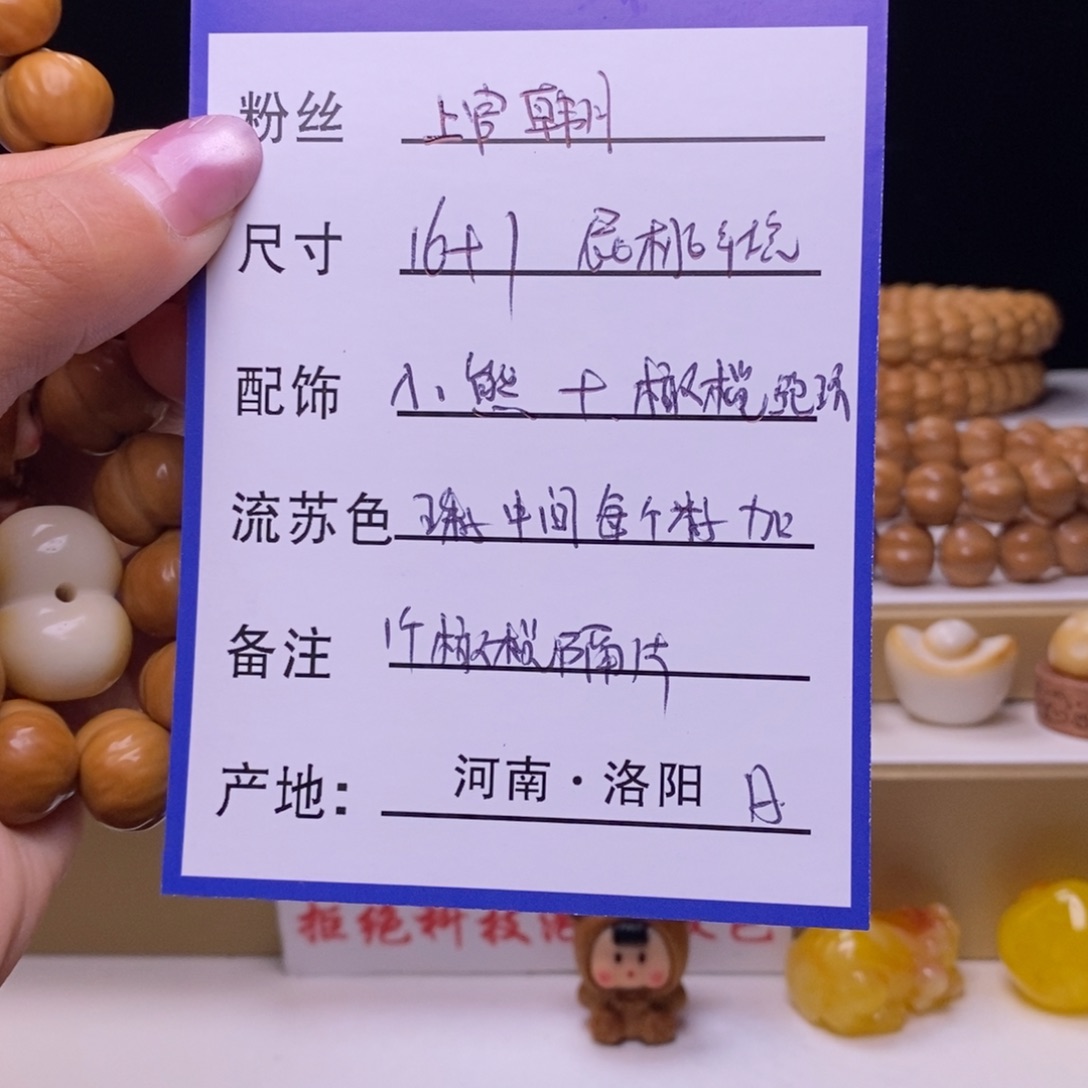 粉丝 上官韩月
尺寸 16+1 屁桃手坑
配饰 小熊 + 橄榄跑环
流苏色 珠中间每个珠加
备注 1个橄榄隔片
产地： 河南·洛阳 A
拒绝科技